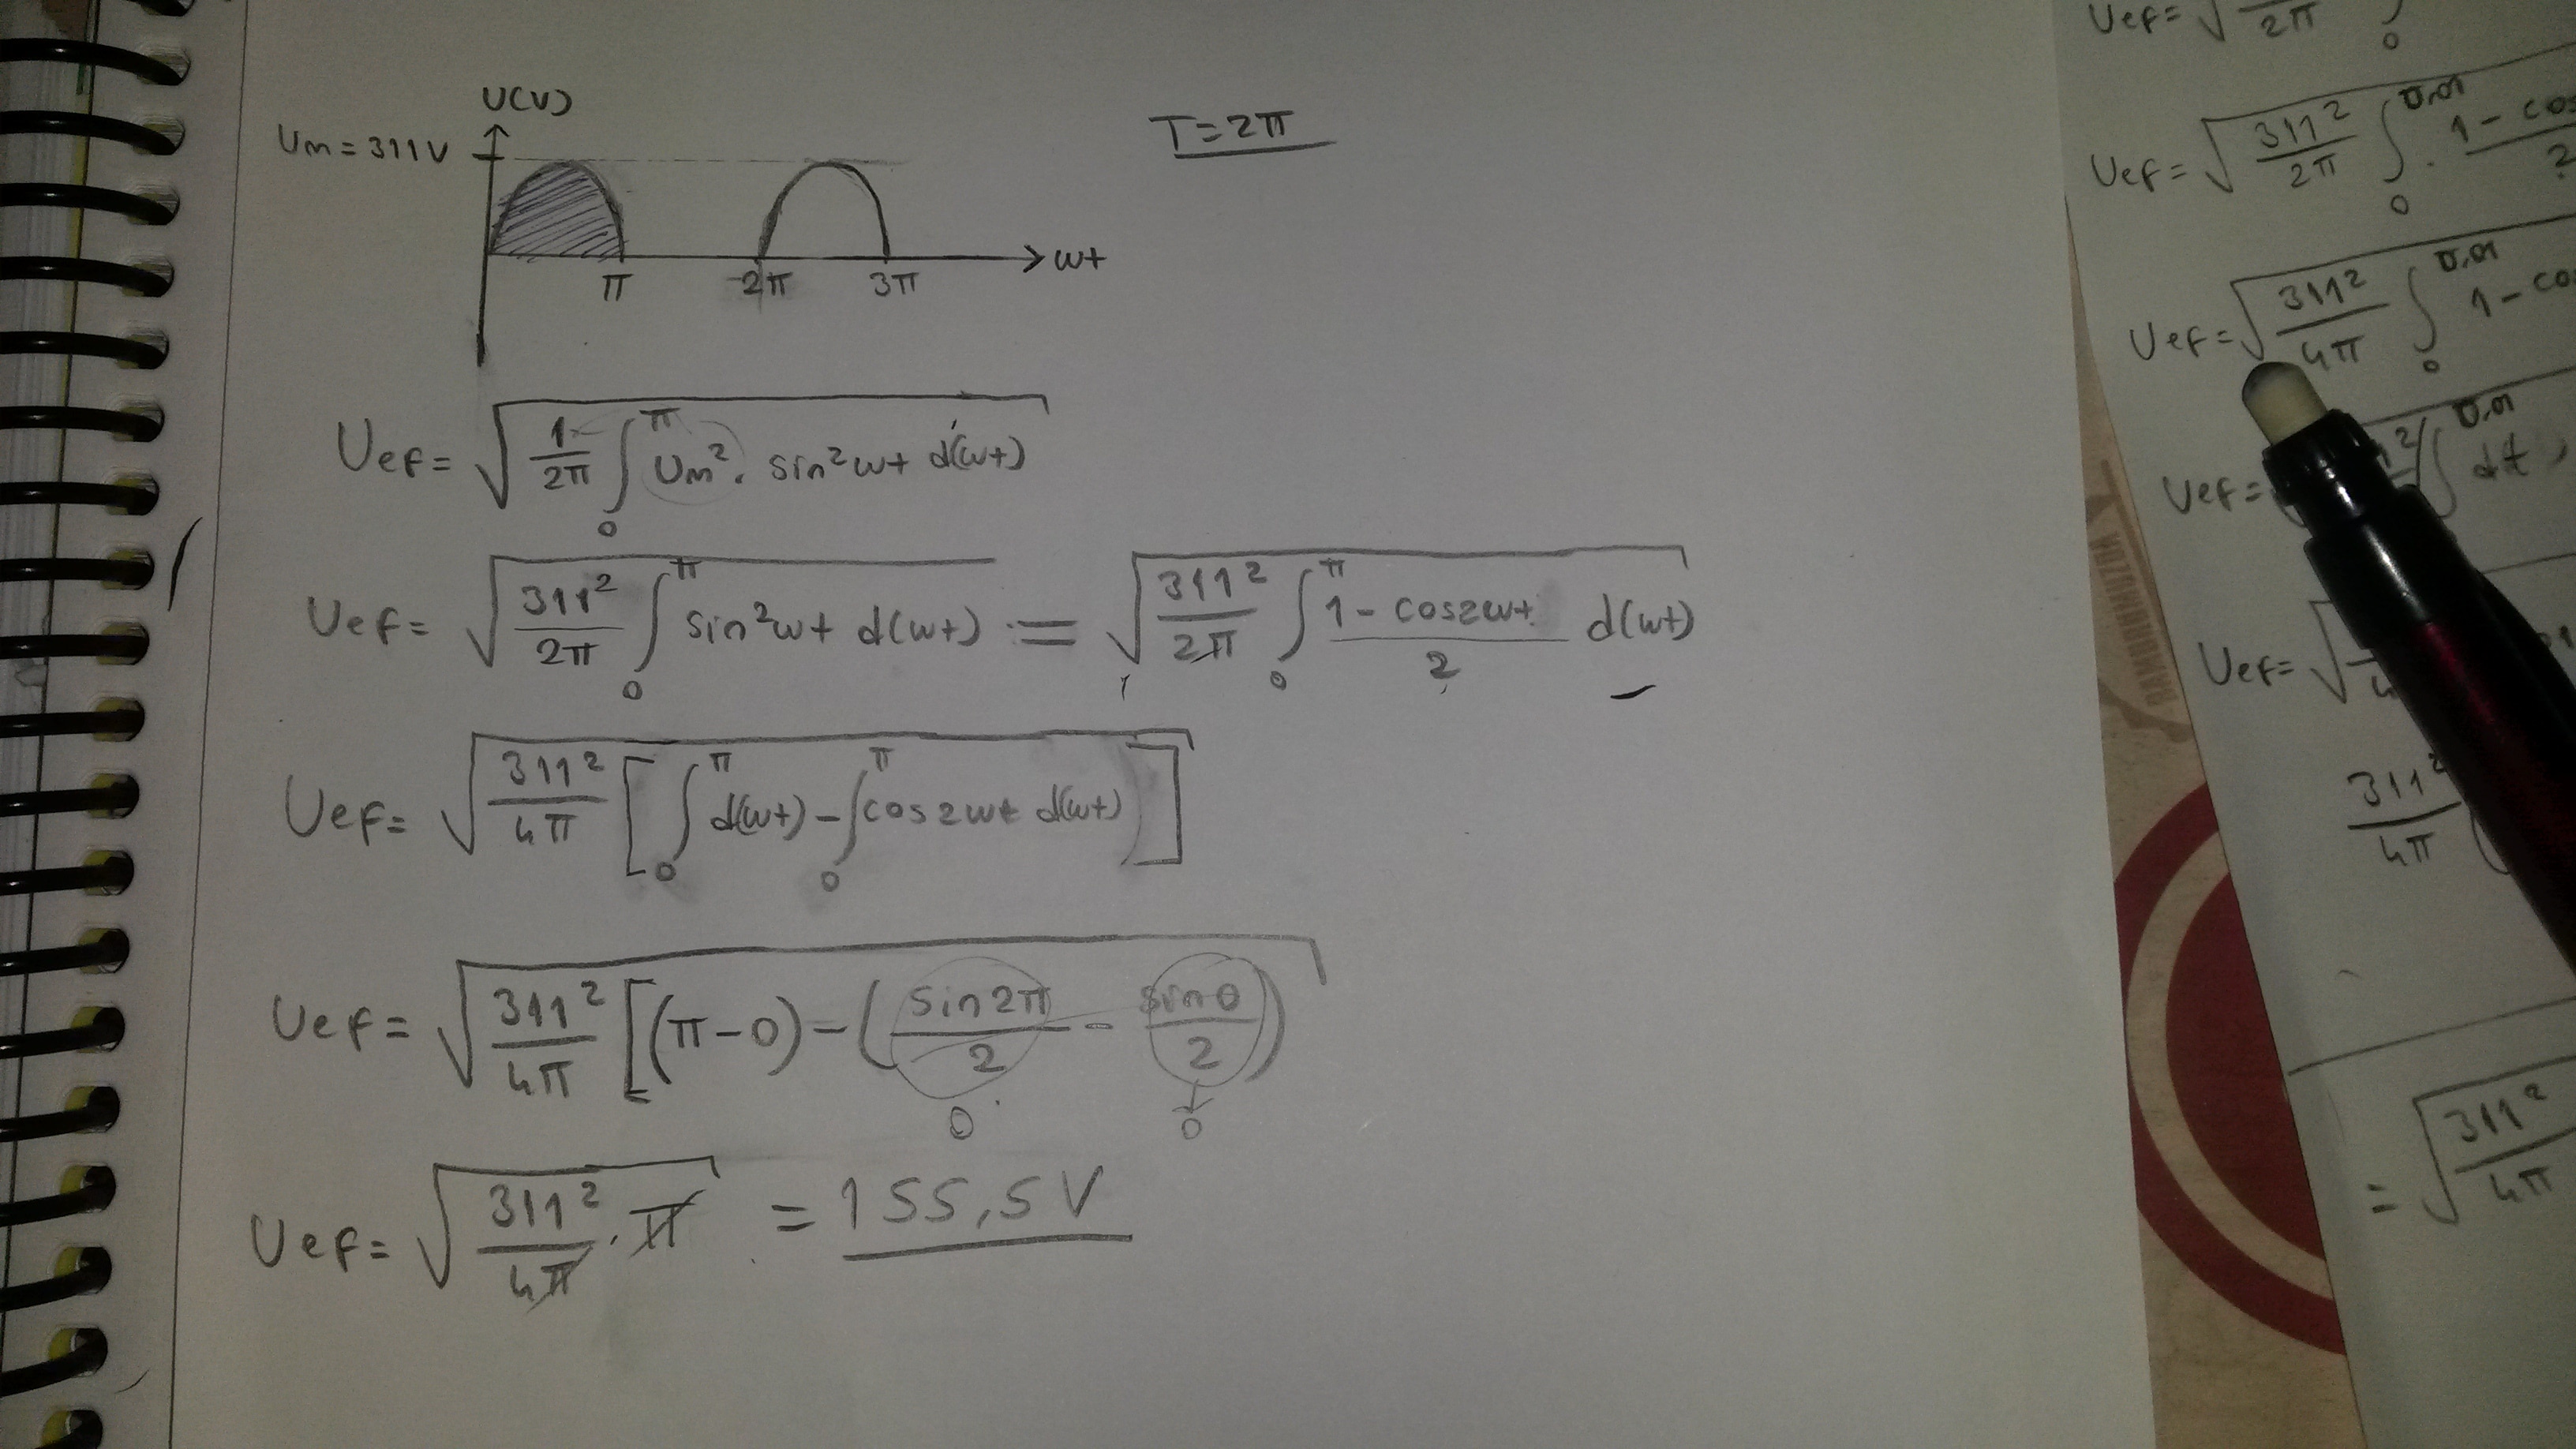 U(V)
Um = 311V
T=2π
ωt
π 2π 3π
Uef= √(1/2π ∫₀^π Um². sin²ωt d(ωt))
Uef= √(311²/2π ∫₀^π sin²ωt d(ωt)) = √(311²/2π ∫₀^π (1-cos2ωt)/2 d(ωt))
Uef= √(311²/4π [∫₀^π d(ωt) - ∫₀^π cos2ωt d(ωt)])
Uef= √(311²/4π [(π-0)-(sin2π/2 - sin0/2)])
0 0
Uef= √(311²/4π . π) = 155,5V
Uef= √ 2π ∫₀
Uef= √(311²/2π ∫₀^0,01 . 1-cos
Uef= √(311²/4π ∫₀^0,01 1-cos
Uef= ∫ 0,01 dt,
Uef= √
311²/4π
= √(311²/4π